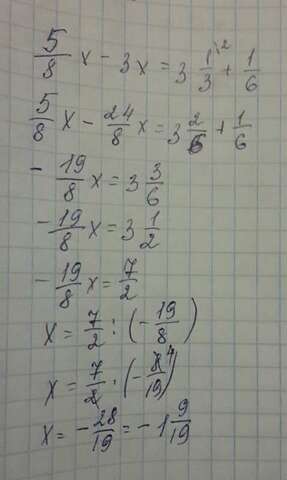 5/8 x - 3x = 3 1/3 \2 + 1/6
5/8 x - 24/8 x = 3 2/6 + 1/6
- 19/8 x = 3 3/6
- 19/8 x = 3 1/2
- 19/8 x = 7/2
x = 7/2 : (- 19/8)
x = 7/2 · (- 8/19) 4
x = - 28/19 = - 1 9/19